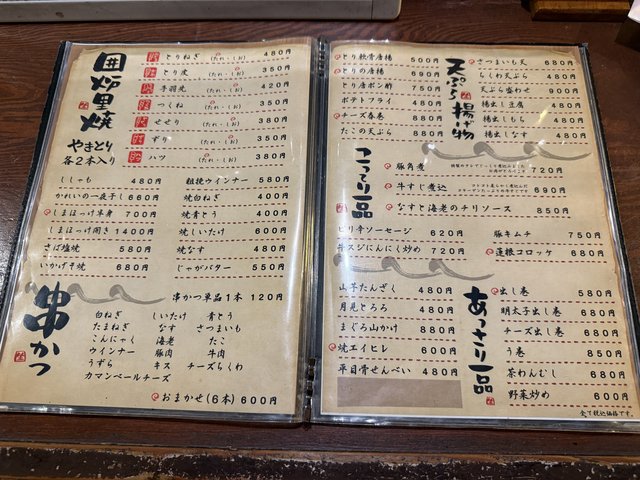 囲炉裏焼
やきとり
各2本入り
とりねぎ (たれ・しお) 480円
とり皮 (たれ・しお) 350円
手羽先 (たれ・しお) 420円
つくね (たれ・しお) 350円
せせり (たれ・しお) 350円
ずり (たれ・しお) 350円
ハツ (たれ・しお) 350円
ししゃも 480円
かれいの一夜干し 660円
しまほっけ半身 700円
しまほっけ開き 1400円
さば塩焼 580円
いかげそ焼 680円
粗挽ウインナー 580円
焼白ねぎ 400円
焼青とう 400円
焼しいたけ 600円
焼なす 480円
じゃがバター 550円
串かつ
串かつ単品1本 120円
白ねぎ しいたけ 青とう
たまねぎ なす さつまいも
こんにゃく 海老 たこ
ウインナー 豚肉 牛肉
うずら キス チーズちくわ
カマンベールチーズ
おまかせ(6本) 600円
天ぷら 揚げ物
とり軟骨唐揚 500円
とりの唐揚 690円
とり唐ポン酢 750円
ポテトフライ 480円
チーズ春巻 580円
たこの天ぷら 880円
さつまいも天 680円
ちくわ天ぷら 480円
天ぷら盛わせ 900円
揚出し豆腐 480円
揚出しもち 480円
揚出しなす 480円
こってり一品
豚角煮 720円
牛すじ煮込 690円
なすと海老のチリソース 850円
とり辛ソーセージ 620円
牛スジにんにく炒め 720円
豚キムチ 750円
蓮根コロッケ 680円
あっさり一品
山芋たんざく 480円
月見とろろ 480円
まぐろ山かけ 880円
焼エイヒレ 600円
平目骨せんべい 480円
出し巻 580円
明太子出し巻 680円
チーズ出し巻 680円
う巻 850円
茶わんむし 580円
野菜炒め 680円
全て税込価格です。